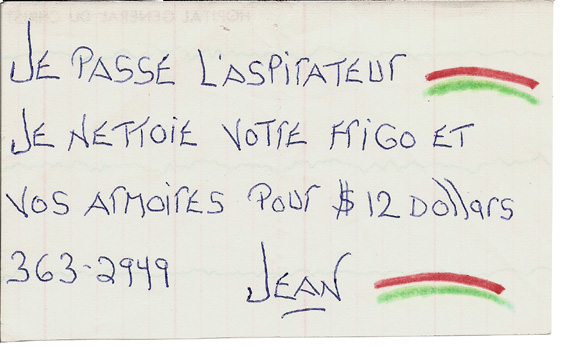 JE PASSE L'ASPIRATEUR
JE NETTOIE VOTRE FRIGO ET
VOS ARMOIRES POUR $ 12 Dollars
363-2949 JEAN